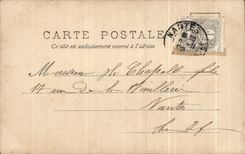 CARTE POSTALE
Ce côté est exclusivement réservé à l'adresse
NANTES
Monsieur Ch. Chapelle fils
14 rue de la
Nantes